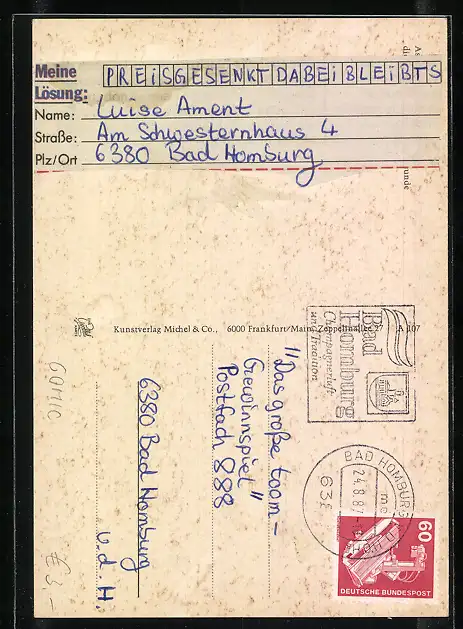 Meine
Lösung:
PREiSGESENKTDABEiBLEiBTS
Name: Luise Ament
Straße: Am Schwesternhaus 4
Plz/Ort 6380 Bad Homburg
Kunstverlag Michel & Co., 6000 Frankfurt/Main, Zeppelinallee 27 A 107
Bad
Homburg
Champagnerluft
und Tradition
"Das große toom-
Gewinnspiel"
Postfach 888
6380 Bad Homburg
v.d.H.
BAD HOMBURG
24.8.87
60
DEUTSCHE BUNDESPOST
€ 3,-